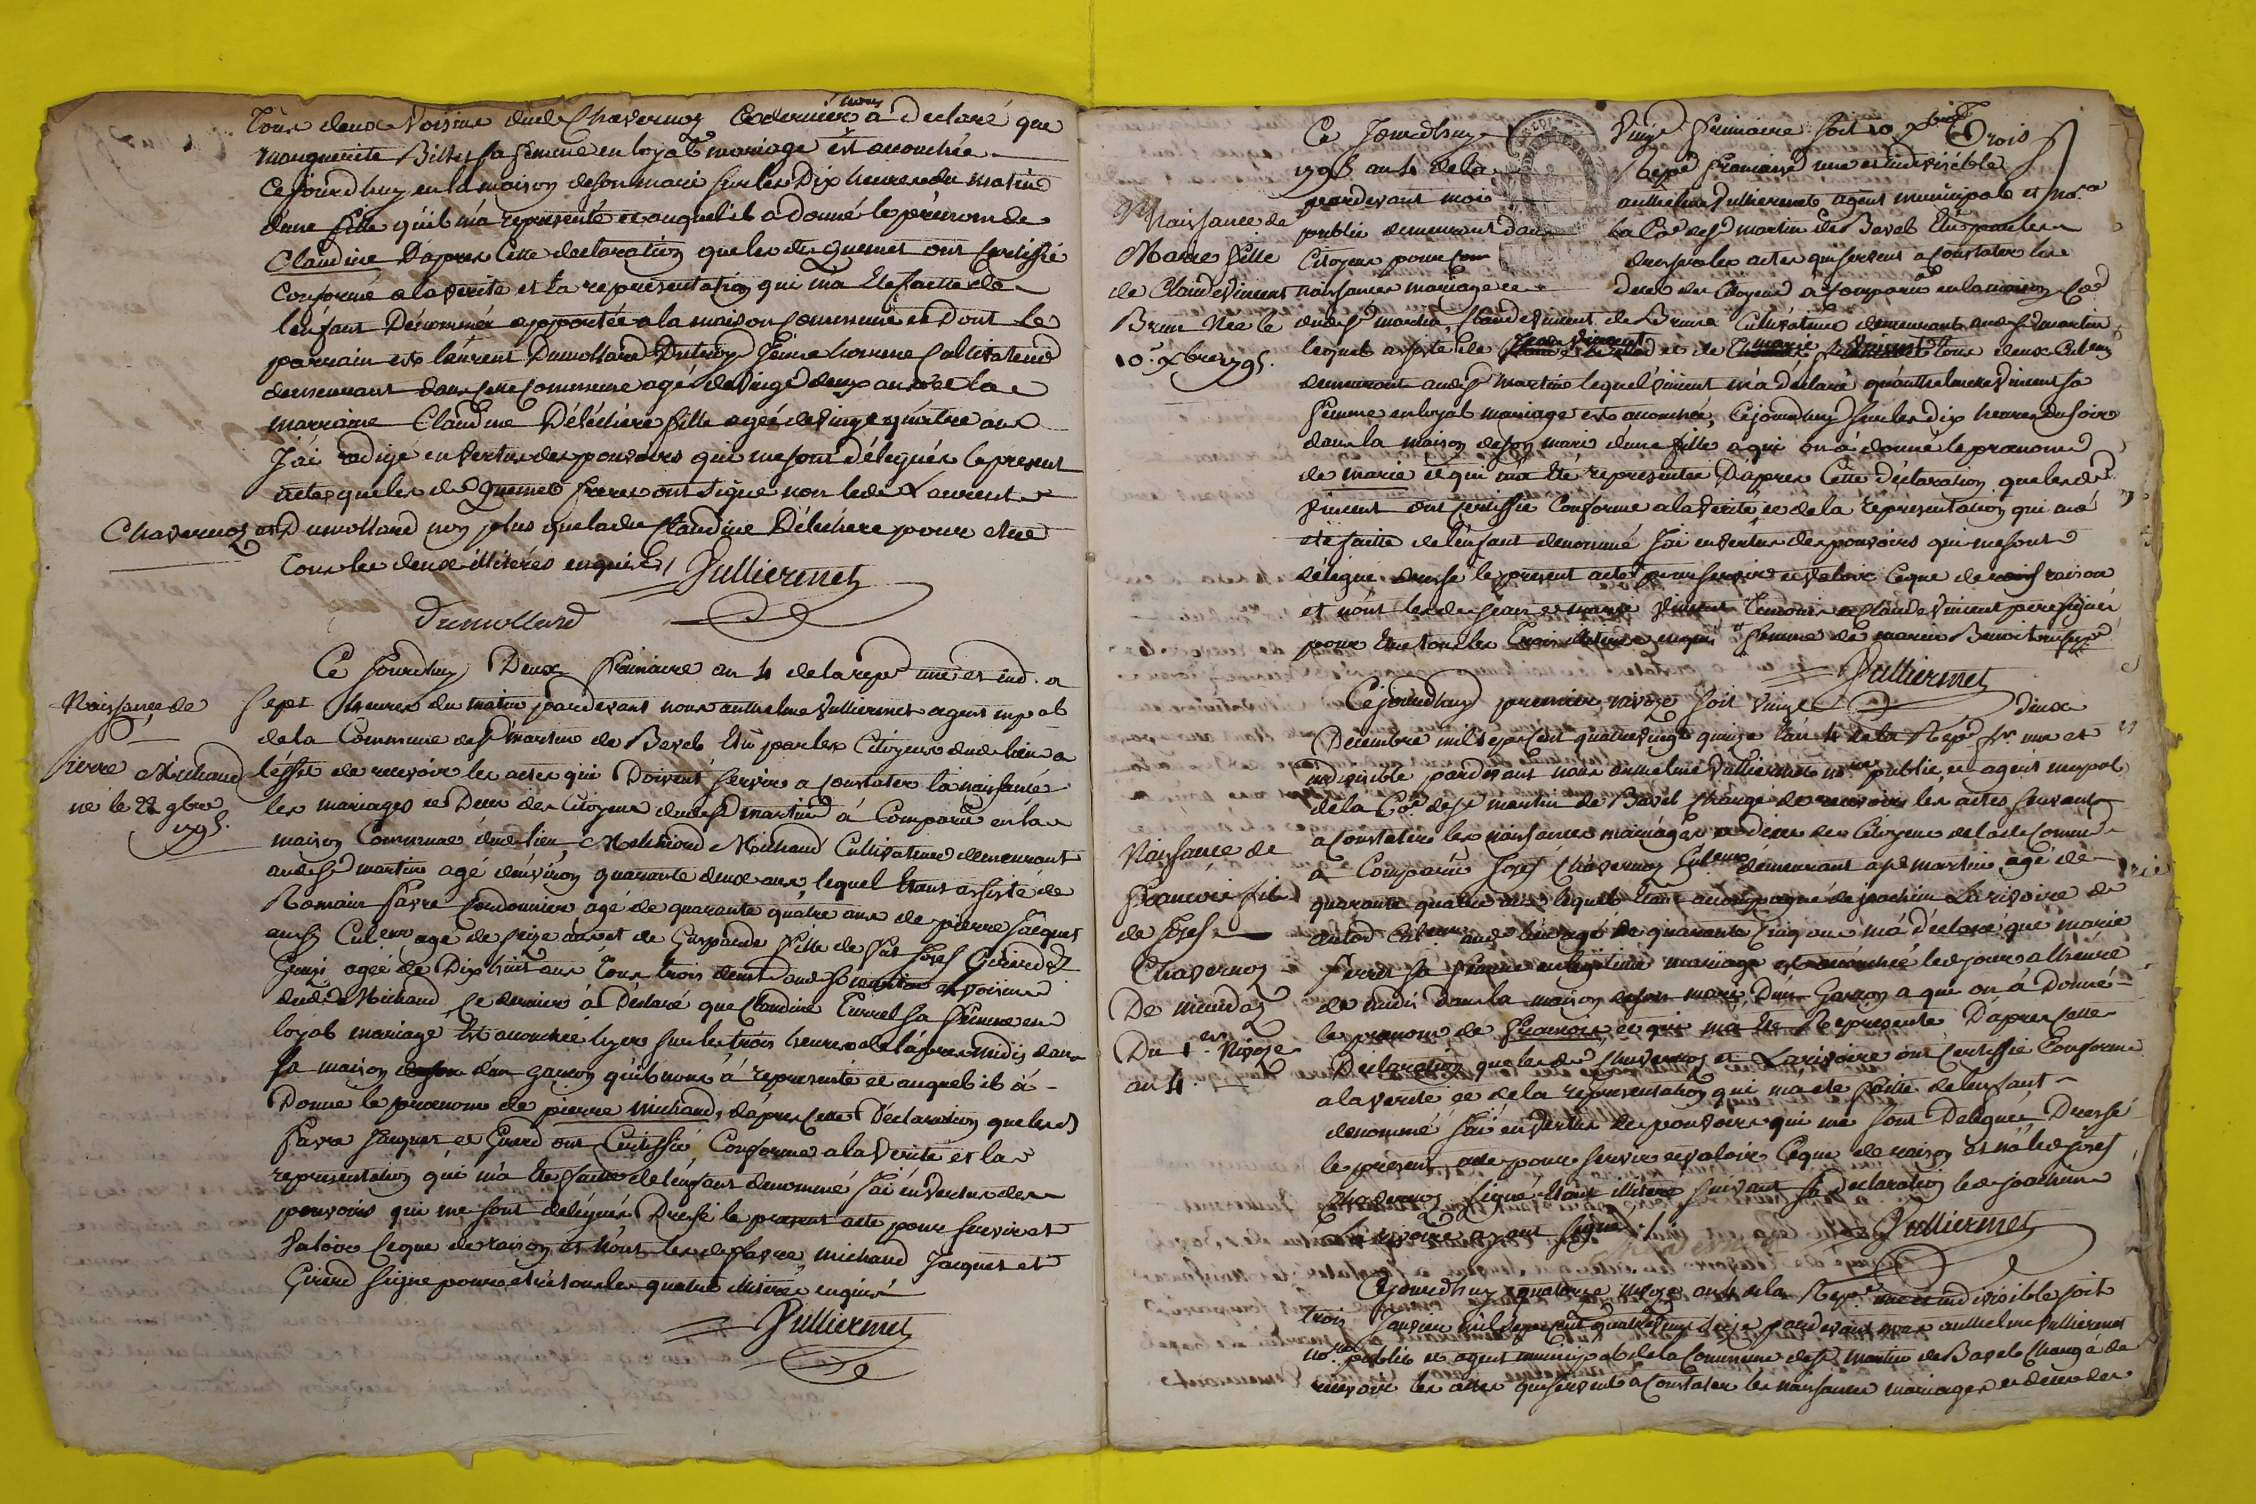 Tous deux Voisins dud Chavernoz Ce dernier nous a Declaré que
marguerite Billet sa femme en loyal mariage est accouchée
Cejourdhuy en la maison de son mari sur les Dix heures du matin
d'une fille qu'il m'a representé et auquel il a donné le prénom de
Claudine D'après Cette declaration que les dts Quenet ont Certiffié
Conforme a la verité et La representation qui m'a Eté faitte de
l'enfant Dénommée apportée a la maison Commune et Dont le
parrain est laurent Dumollard Jeune homme Cultivateur
demeurant dans cette commune agé de vingt deux ans et la
marraine Claudine Délechère fille agée de vingt quatre ans
J'ai redigé en vertu des pouvoirs qui me sont délegués le present
acte que les ds Quenet freres ont signé non led. Laurent
Chavernoz et Dumollard non plus que lade Claudine Délechere pour etre
Tous les deux illiterés enquis /. Vulliermet
Dumollard
Ce Jourdhuy Deux frimaire an 4 de la rep. une et ind. a
Naissance de
Pierre Michaud
né le 22 9bre
1795.
Sept heures du matin pardevant nous anthelme Vulliermet agent mpal
de la Commune de St martin de Bavel Elu par les Citoyens dud. lieu a
l'effet de recevoir les actes qui Doivent servir a constater la naissance
les mariages et Deces des Citoyens dud St martin à Comparu en la
maison Commune dud. lieu Melchiord Michaud Cultivateur demeurant
aud St martin agé d'environ quarante deux ans, lequel Etant assisté de
Romain favre Cordonnier agé de quarante quatre ans de pierre Jacquet
aussy Culteur agé de seize ans et de Gasparde fille de Josef Girard
agée de Dix huit ans Tous trois demt aud St martin et voisins
dud. Michaud, Ce dernier à Déclaré que Claudine Turrel sa femme en
loyal mariage Est accouchée hyer sur les trois heures de l'apres midis dans
sa maison d'un garcon qu'il nous à representé et auquel il à
Donné le prenom de pierre michaud, d'après Cette Déclaration que les d
favre Jacquet et Girard ont Certiffié, Conforme a la Verité et la
representation qui m'a Eté faite de l'enfant denommé J'ai en Vertus des
pouvoirs qui me sont délégués Dressé le present acte pour servir et
Valoir Ceque de raison et n'ont les ds favre, michaud Jacquet et
Girard signé pour etre tous les quatre illiterés enquis
Vulliermet
Ce Jourdhuy Vingt frimaire soit 10 xbre Trois
1795 an 4 de la Repe francaise une et indivisible
pardevant moi anthelme Vulliermet agent municipal et nore
Naissance de
Marie fille
de Claude Vincent
Brun Née le
10e. Xbre 1795.
public demeurant dans la Ce de St martin de Bavel Elu par les
Citoyens pour dresser les actes qui servent a constater les
naissances mariages et deces des Citoyens à Comparu en la maison Ce
dud St martin, Claude vincent de Brun Cultivateur demeurant aud St martin
lequel assisté de Jean Vincent et de marie vincent tous deux Culteurs
demeurant aud St martin lequel vincent m'a déclaré qu'anthelmette Vincent sa
femme en loyal mariage est accouchée, Cejourdhuy sur les dix heures du soir
dans la maison de son mari d'une fille a qui on à donné le prenom
de marie et qui m'a Eté representée D'après Cette déclaration que les ds
vincent ont Certiffié Conforme a la verité et de la representation qui m'a
eté faitte de l'enfant denommé J'ai en vertu des pouvoirs qui me sont
délegué dressé le present acte pour servir et valoir Ceque de raison
et n'ont les ds Jean et marie Vincent Temoins et Claude Vincent pere signé
pour Etre tous les Trois illiterés enquis et femme de marin Benoit
Vulliermet
Cejourdhuy premier nivoze soit vingt deux
Décembre mil sept Cent quatre vingt quinze l'an 4 de la Rep. fr. une et
indivisible pardevant nous anthelme Vulliermet nore public, et agent mupal
de la Ce de St martin de Bavel chargé de recevoir les actes servant
a Constater les naissances mariages et deces des Citoyens de lade Commune
Naissance de
francois fils
de Josef
Chavernoz
De meurdaz
Du 1er. Nivoze
an 4.
à Comparu Josef Chavernoz Culteur demeurant a St martin agé de
quarante quatre ans lequel Etant accompagné de Joachim Larivoire de
Culteur aud. lieu agé de quarante Cinq ans m'a déclaré que marie
perret sa femme en legitime mariage est accouchée led jour a l'heure
de midis dans la maison de son mari, D'un Garcon a qui on à Donné
le prenom de francois, et qui m'a Eté Representé D'apres Cette
Déclaration que les ds Chavernoz et Larivoire ont Certiffié Conforme
a la verité et de la representation qui m'a eté faitte de l'enfant
denommé J'ai en Vertus des pouvoirs qui me sont Delegués Dressé
le present acte pour servir et valoir Ceque de raison et n'a led Josef
Chavernoz signé Etant illiteré suivant sa declaration led Joachim
Larivoire ayant signé Vulliermet
Cejourdhuy quatorze nivoze an 4 de la Rep. une et indivisible soit
trois Janvier mil sept cent quatre vingt seize pardevant nous anthelme Vulliermet
nore public et agent municipal de la Commune de St martin de Bavel Chargé de
recevoir les actes qui servent a Constater les naissances mariages et deces des